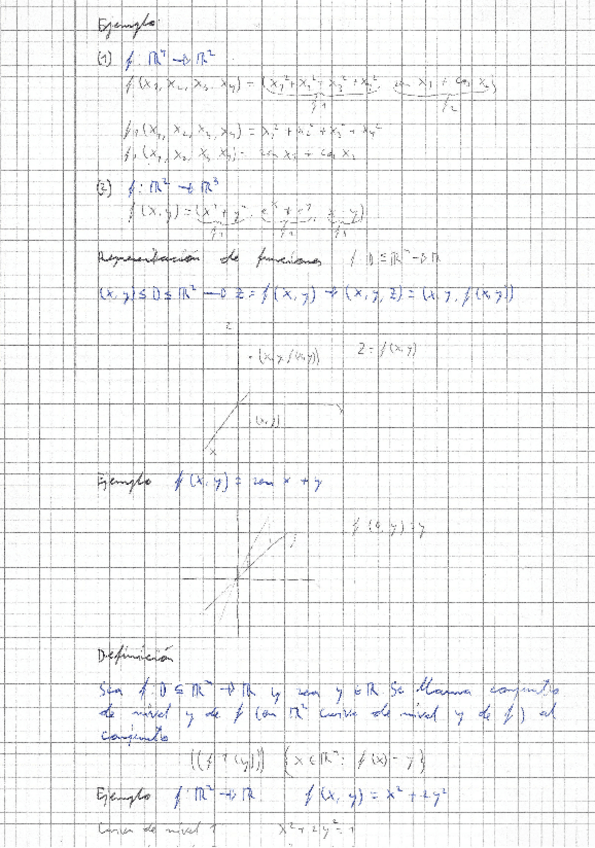 Ejemplo:
(1) f: ℝ⁴ → ℝ²
f(x₁, x₂, x₃, x₄) = (x₁² + x₂² + x₃² + x₄², sen x₁ + cos x₂)
f₁ f₂
f₁(x₁, x₂, x₃, x₄) = x₁² + x₂² + x₃² + x₄²
sen x₁ + cos x₂
(2) f: ℝ² → ℝ³
f(x, y) =
Representación de funciones f D ⊆ ℝⁿ → ℝ
(x, y) ⊆ D ⊆ ℝ² → z = f(x, y) → (x, y, z) = (x, y, f(x, y))
z
(x, y, f(x, y)) z = f(x, y)
(x, y)
x
Ejemplo f(x, y) = sen x + y
f(0, y) = y
Definición
Sea f: D ⊆ ℝⁿ → ℝ y sea y ∈ ℝ. Se llama conjunto
de nivel y de f (en ℝ² curva de nivel y de f) al
conjunto
{x ∈ ℝⁿ: f(x) = y}
Ejemplo f: ℝ² → ℝ f(x, y) = x² + 2y²
Curva de nivel 1 x² + 2y² = 1